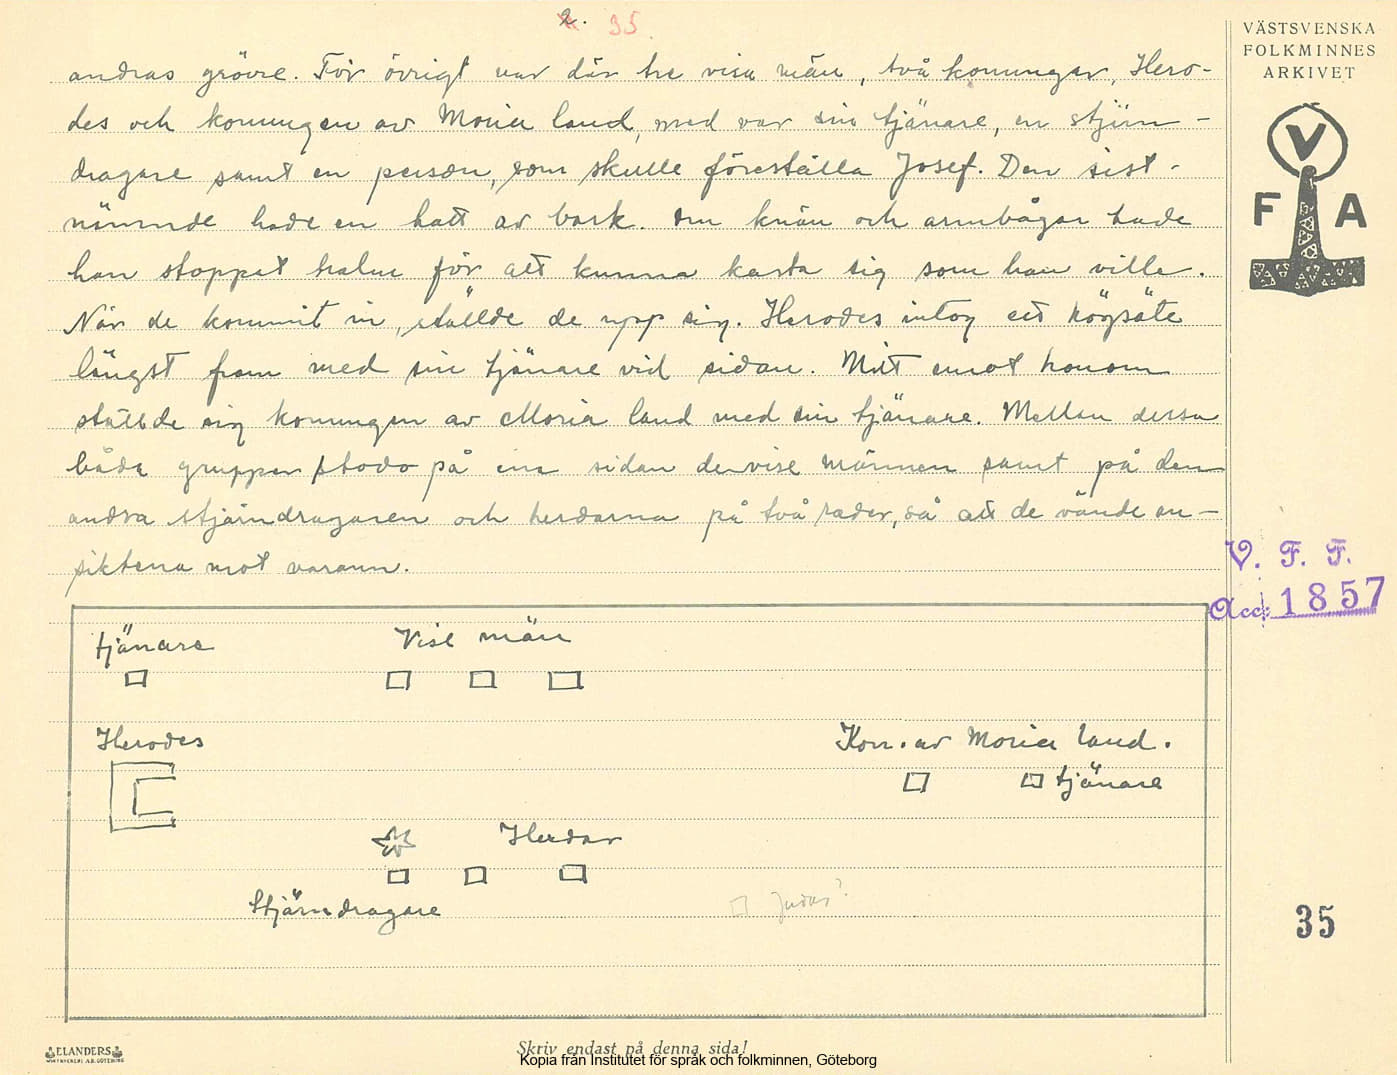 2. 35.
VÄSTSVENSKA
FOLKMINNES
ARKIVET
V
F A
andras grövre. För övrigt var där tre visa män, två konungar, Hero-
des och konungen av Moria land, med var sin tjänare, en stjärn-
dragare samt en person, som skulle föreställa Josef. Den sist-
nämnde hade en hatt av bark. Om knän och armbågar hade
han stoppat halm för att kunna kasta sig som han ville.
När de kommit in, ställde de upp sig. Herodes intog ett högsäte
längst fram med sin tjänare vid sidan. Mitt emot honom
ställde sig konungen av Moria land med sin tjänare. Mellan dessa
båda grupper stodo på ena sidan de vise männen samt på den
andra stjärndragaren och herdarna på två rader, så att de vände an-
siktena mot varann.
V. F. F.
Acc: 1857
tjänare
Vise män
Herodes
Kon. av Moria land.
tjänare
Herdar
Stjärndragare
Judas?
35
ELANDERS
Skriv endast på denna sida!
Kopia från Institutet för språk och folkminnen, Göteborg